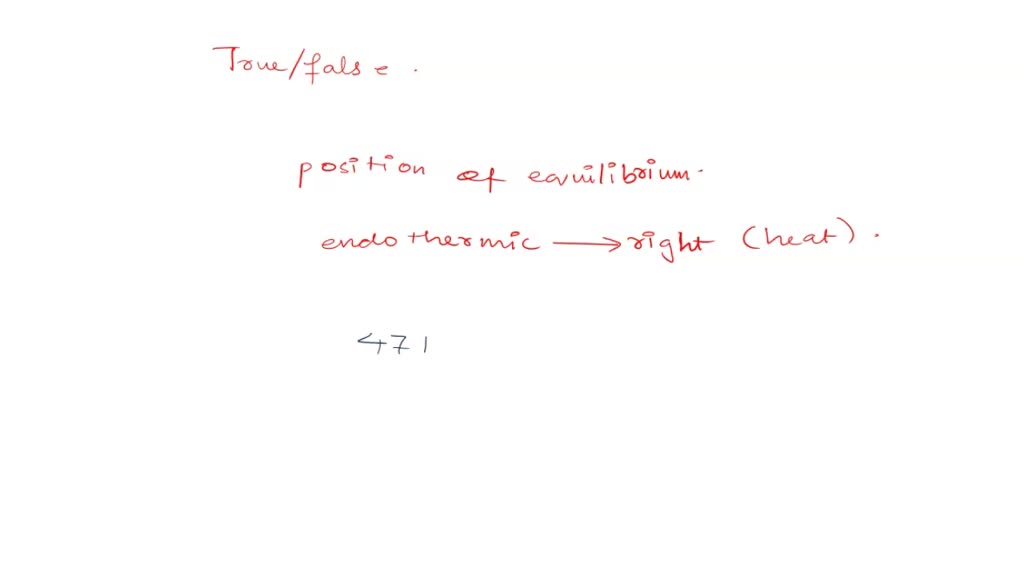 True/false.
position of equilibrium.
endothermic → right (heat).
471